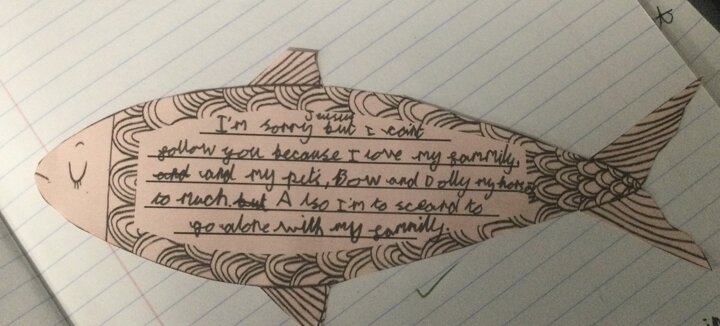 I'm sorry Jesus but I can't
follow you because I love my fammily,
and and my pets, Bow and Dolly my horses
to much but A lso I'm to sceard to
go alone with my fammily.